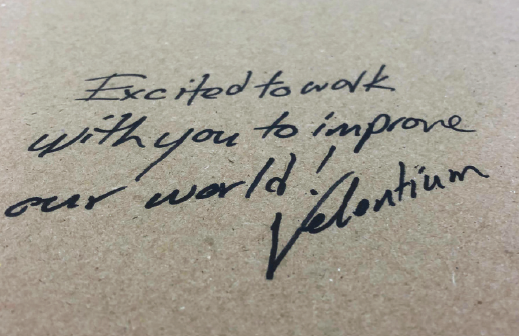 Excited to work
with you to improve
our world!
Velentium